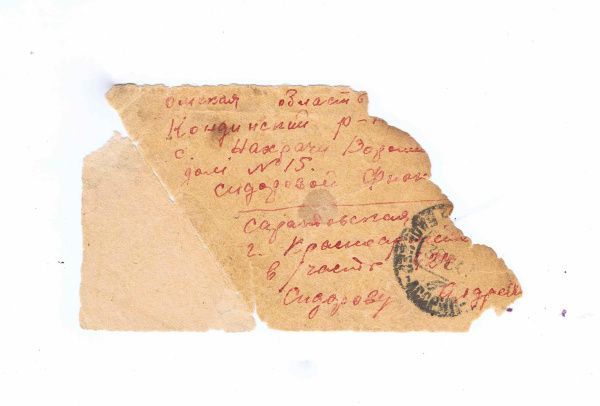 омская область
Кондинский р-н
с Нахрачи Ворош
дом №15.
сидоровой Фиок
саратовская
г. Красноар
в/часть
Сидорову Андрею